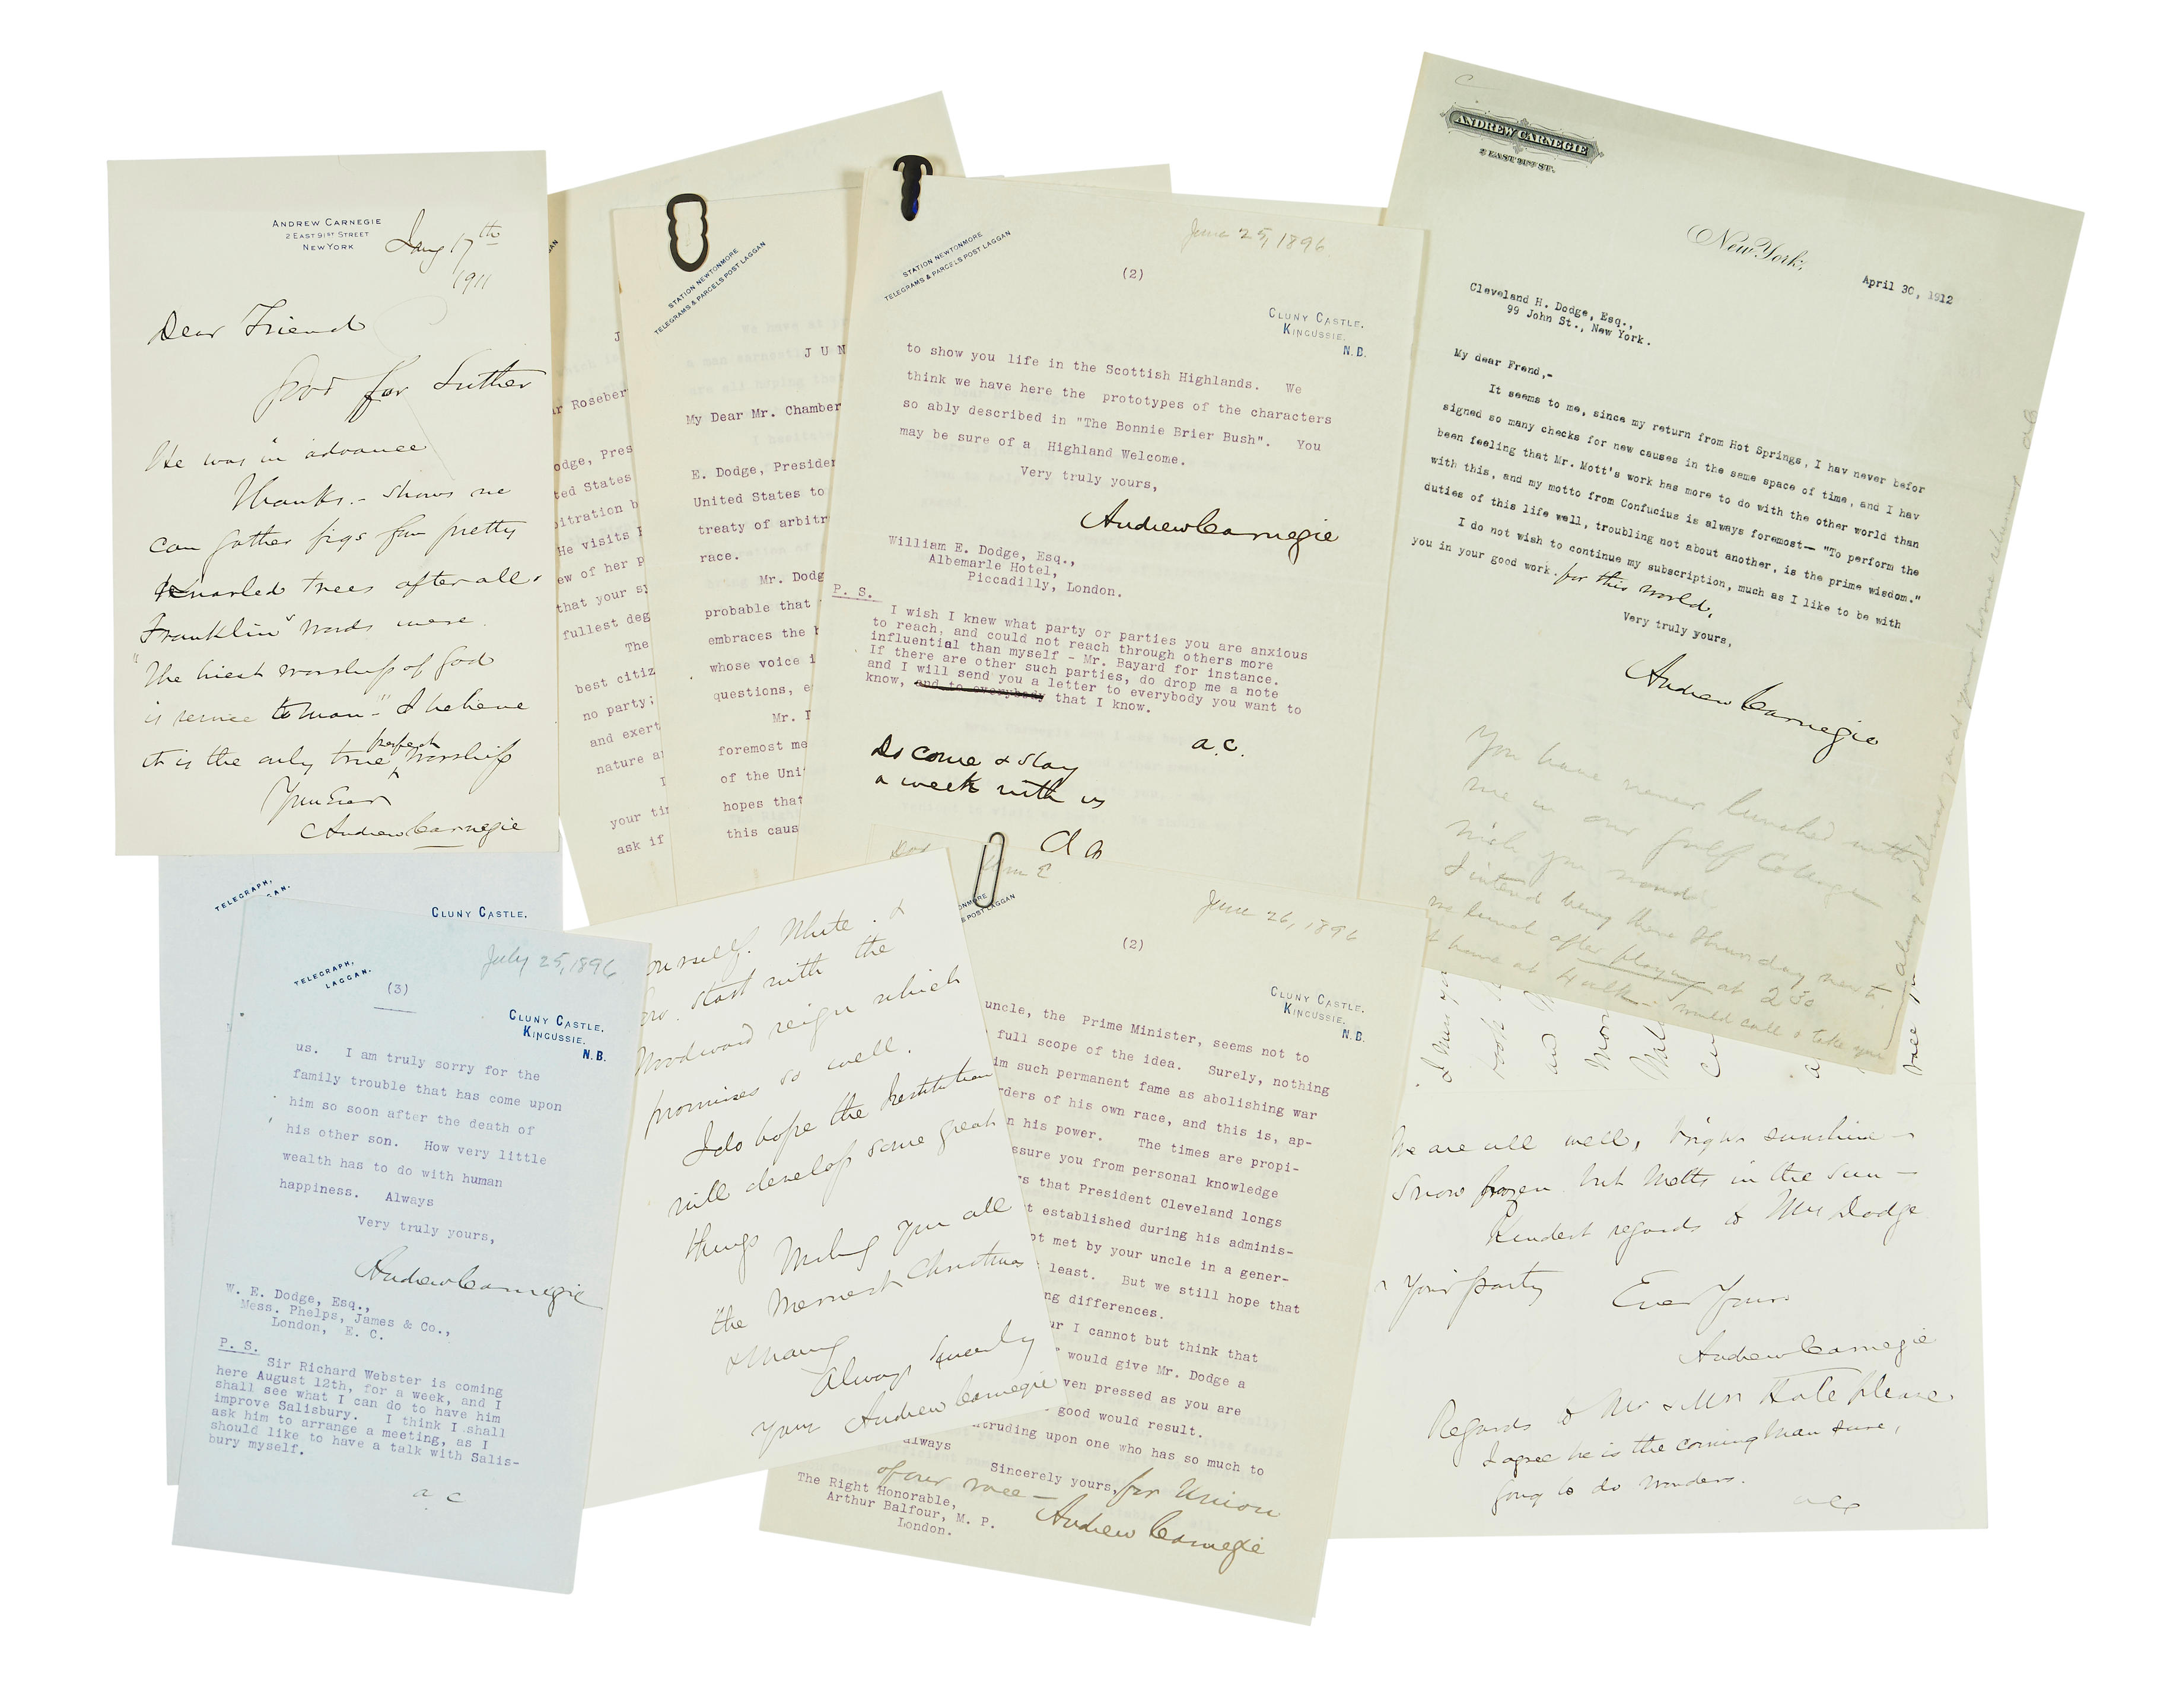 ANDREW CARNEGIE
2 EAST 91ST STREET
NEW YORK
Jany 17th
1911
Dear Friend
Good for Luther
He was in advance
Thanks.- shows we
can gather figs from pretty
knarled trees after all.
Franklin's words were
"The hiest worship of God
is service to man-" I believe
it is the only true perfect worship
Yours Ever
Andrew Carnegie
ar Roseber
odge, Pres
ted States
bitration b
He visits
ew of her p
that your s
fullest deg
The
best citiz
no party;
and exert
nature a
your ti
ask if
STATION NEWTONMORE
TELEGRAMS & PARCELS POST LAGGAN
J U N
My Dear Mr. Chamber
E. Dodge, Presiden
United States to
treaty of arbitr
race.
Mr. Dodg
probable that
embraces the
whose voice i
questions, e
Mr.
foremost me
of the Uni
hopes that
this caus
STATION NEWTONMORE
TELEGRAMS & PARCELS POST LAGGAN
June 25, 1896
(2)
CLUNY CASTLE.
KINGUSSIE.
N.B.
to show you life in the Scottish Highlands. We
think we have here the prototypes of the characters
so ably described in "The Bonnie Brier Bush". You
may be sure of a Highland Welcome.
Very truly yours,
Andrew Carnegie
William E. Dodge, Esq.,
Albemarle Hotel,
Piccadilly, London.
P. S.
I wish I knew what party or parties you are anxious
to reach, and could not reach through others more
influential than myself - Mr. Bayard for instance.
If there are other such parties, do drop me a note
and I will send you a letter to everybody you want to
know, and to everybody that I know.
a.c.
Do come & stay
a week with us
ANDREW CARNEGIE
2 EAST 91ST ST.
New York,
April 30, 1912
Cleveland H. Dodge, Esq.,
99 John St., New York.
My dear Frend,-
It seems to me, since my return from Hot Springs, I hav never befor
signed so many checks for new causes in the same space of time, and I hav
been feeling that Mr. Mott's work has more to do with the other world than
with this, and my motto from Confucius is always foremost— "To perform the
duties of this life well, troubling not about another, is the prime wisdom."
I do not wish to continue my subscription, much as I like to be with
you in your good work. for this world,
Very truly yours,
Andrew Carnegie
You have never lunched with
me in our golf Cottage
Wish you would
I intend being there Thursday next.
we lunch after playing at 2 30
home at 4 - would call & take you
along &
TELEGRAPH,
CLUNY CASTLE.
July 25, 1896
TELEGRAPH,
LAGGAN.
(3)
CLUNY CASTLE.
KINGUSSIE.
N.B.
us. I am truly sorry for the
family trouble that has come upon
him so soon after the death of
his other son. How very little
wealth has to do with human
happiness. Always
Very truly yours,
Andrew Carnegie
W. E. Dodge, Esq.,
Mess. Phelps, James & Co.,
London, E. C.
P. S.
Sir Richard Webster is coming
here August 12th, for a week, and I
shall see what I can do to have him
improve Salisbury. I think I shall
ask him to arrange a meeting, as I
should like to have a talk with Salis-
bury myself.
a.c
ourself. White &
start with the
Woodward reign which
promises so well.
I do hope the Institution
will develop some great
things
Wishing you all
the Merriest Christmas
& many
Always Sincerely
Yours Andrew Carnegie
POST LAGGAN
June 26, 1896
(2)
CLUNY CASTLE.
KINGUSSIE.
N.B.
uncle, the Prime Minister, seems not to
full scope of the idea. Surely, nothing
im such permanent fame as abolishing war
rders of his own race, and this is, ap-
n his power. The times are propi-
ssure you from personal knowledge
s that President Cleveland longs
t established during his adminis-
ot met by your uncle in a gener-
least. But we still hope that
ng differences.
ur I cannot but think that
would give Mr. Dodge a
ven pressed as you are
good would result.
truding upon one who has so much to
always
Sincerely yours, for Union
of our race —
Andrew Carnegie
The Right Honorable,
Arthur Balfour, M. P.
London.
We are all well, bright sunshine —
Snow frozen but melts in the sun —
Kindest regards to Mrs Dodge
& Your party
Ever Yours
Andrew Carnegie
Regards to Mr & Mrs please
I agree he is the coming man sure,
going to do wonders.